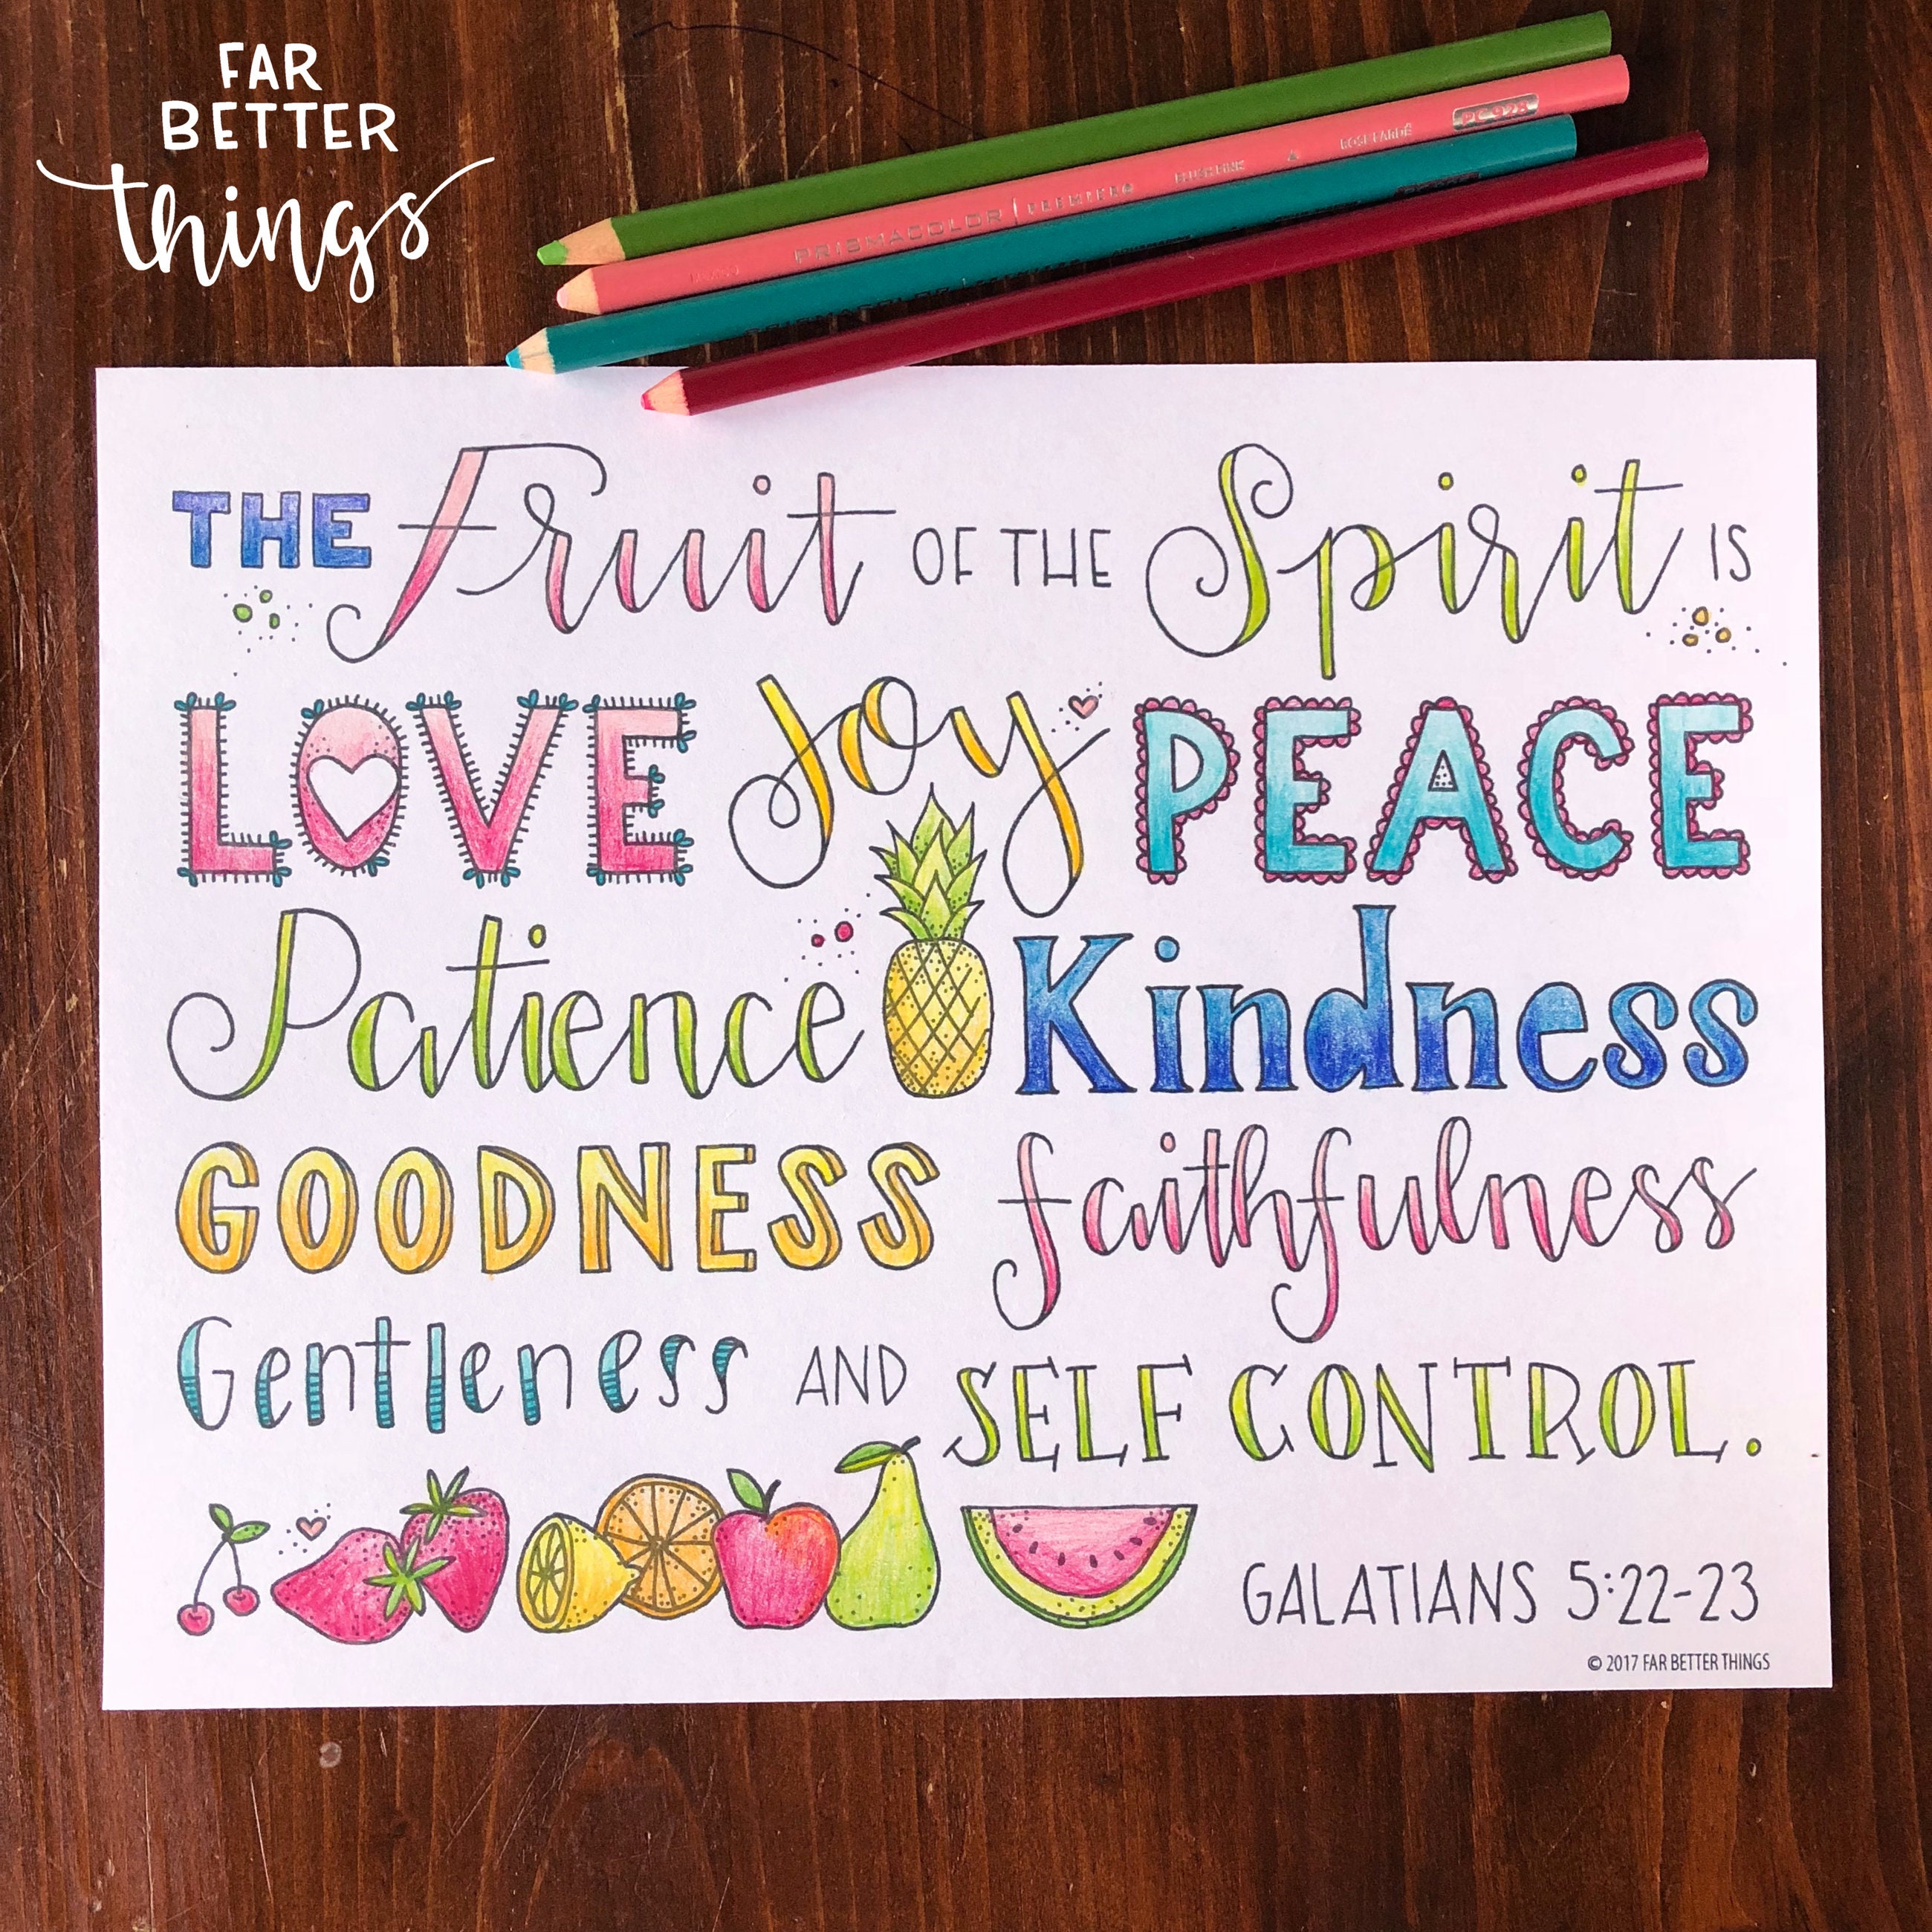 FAR
BETTER
things
PRISMACOLOR | PREMIER BLUSH PINK ROSE FARDÉ PC 928
THE Fruit OF THE Spirit IS
LOVE Joy PEACE
Patience Kindness
GOODNESS faithfulness
Gentleness AND SELF CONTROL.
GALATIANS 5:22-23
© 2017 FAR BETTER THINGS